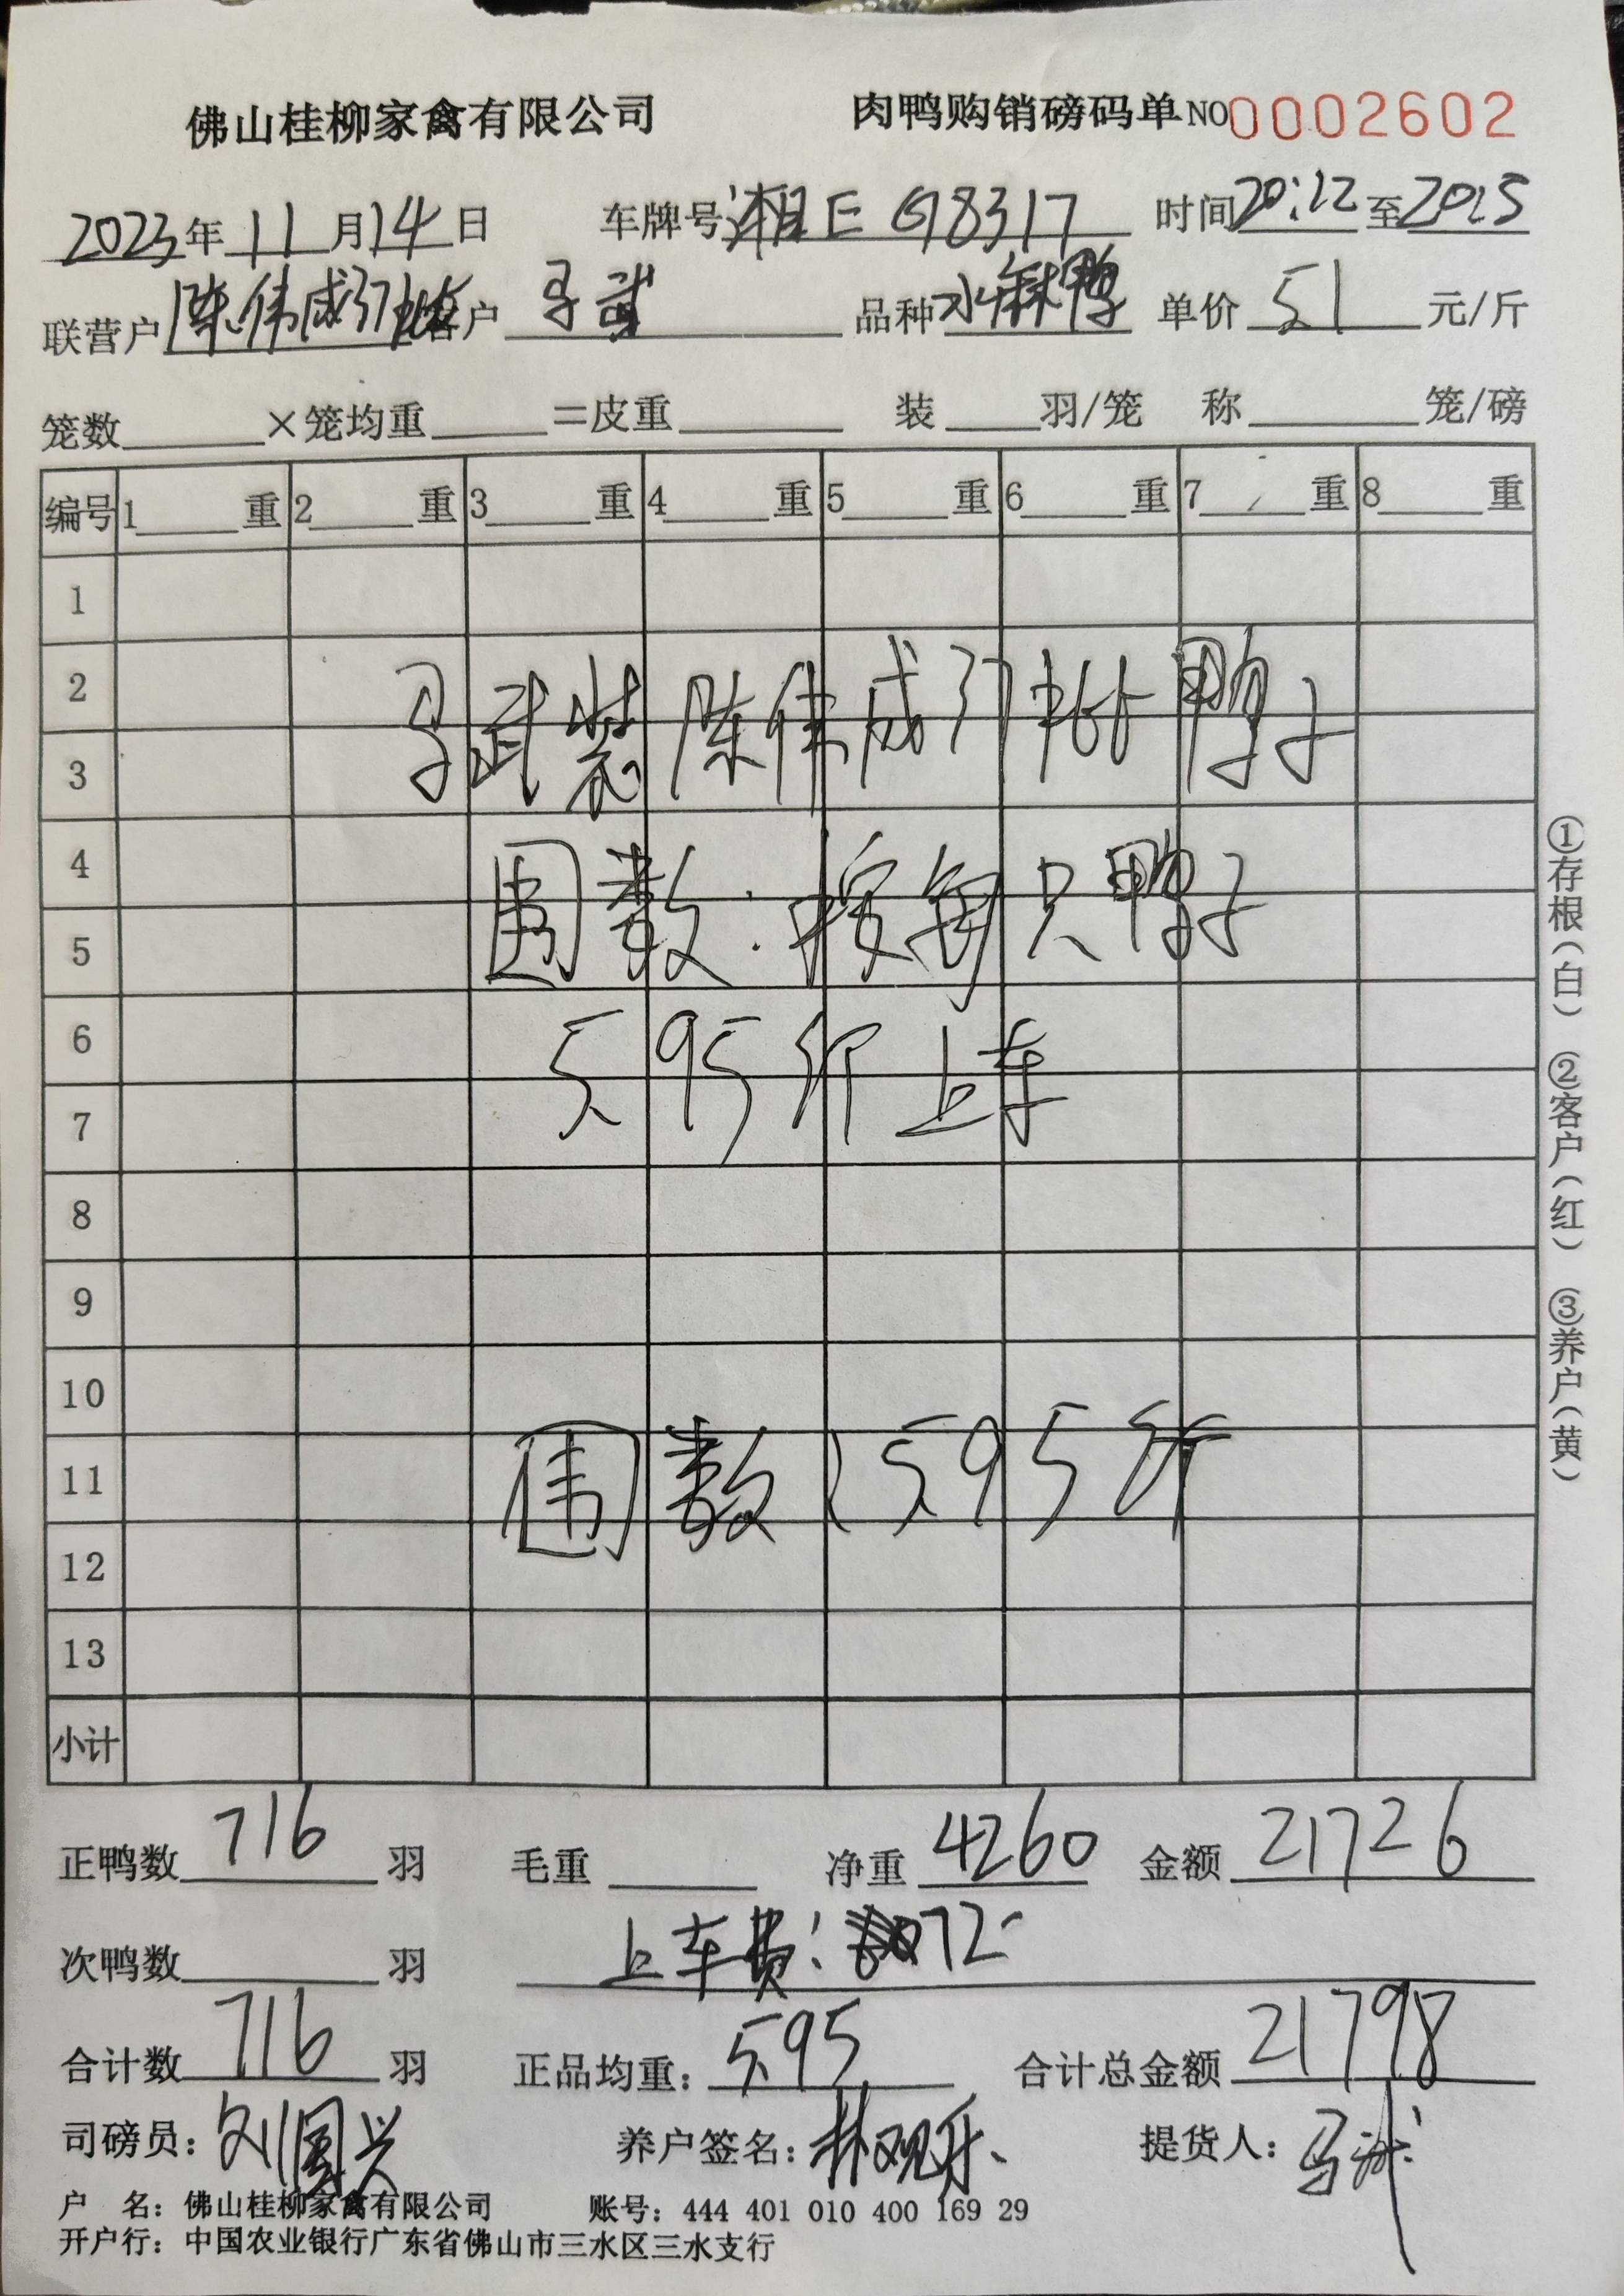 佛山桂柳家禽有限公司 肉鸭购销磅码单NO0002602
2023年11月14日 车牌号湘E G8317 时间20:12至20:15
联营户陈伟成37批客户马武 品种水麻鸭 单价5.1元/斤
笼数 ×笼均重 =皮重 装 羽/笼 称 笼/磅
编号 1 重 2 重 3 重 4 重 5 重 6 重 7 重 8 重
1
2
马武装陈伟成37批鸭子
3
4
围数:按每只鸭子
5
6
5.95斤上车
7
8
9
10
11
围数:5.95斤
12
13
小计
①存根(白) ②客户(红) ③养户(黄)
正鸭数716羽 毛重 净重4260 金额21726
次鸭数 羽 上车费:72
合计数716羽 正品均重:5.95 合计总金额21798
司磅员:刘国兴 养户签名:林观乐 提货人:马武
户 名:佛山桂柳家禽有限公司 账号:444 401 010 400 169 29
开户行:中国农业银行广东省佛山市三水区三水支行